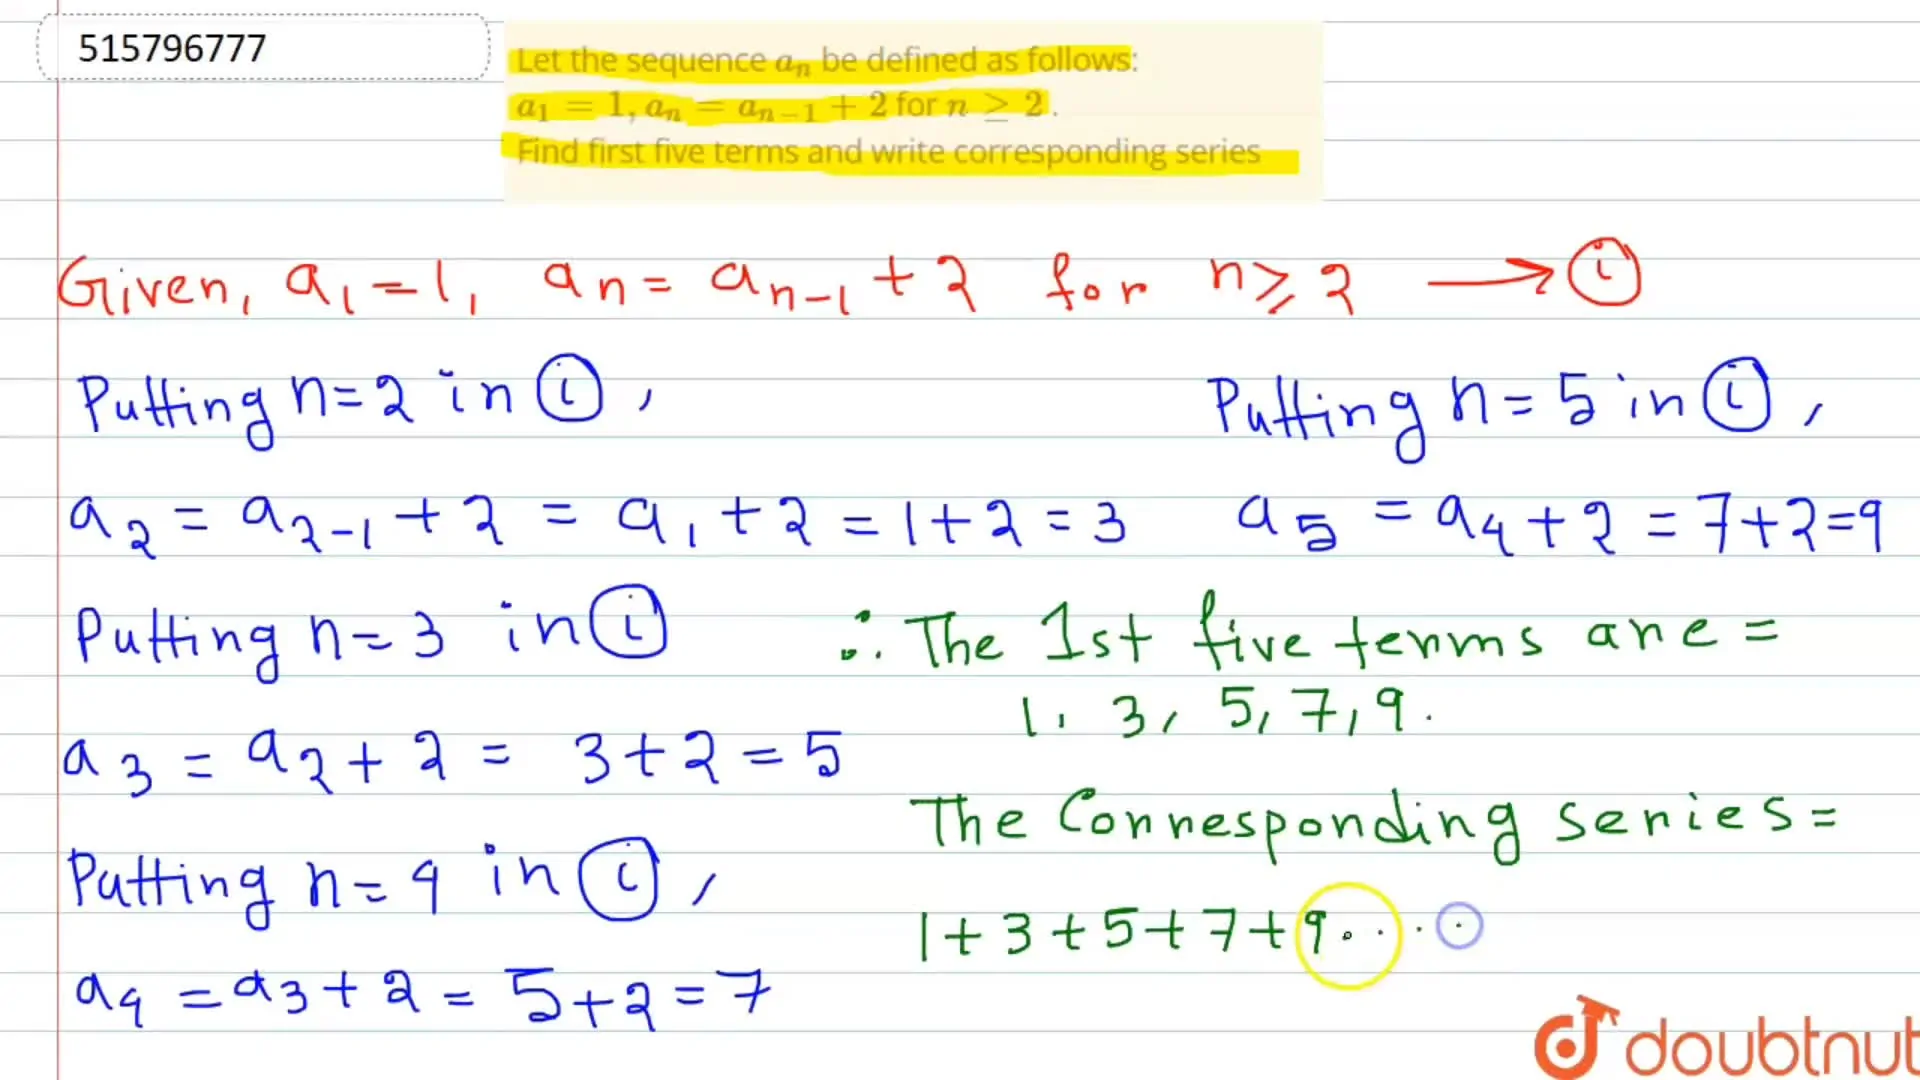 515796777
Let the sequence aₙ be defined as follows:
a₁ = 1, aₙ = aₙ₋₁ + 2 for n ≥ 2 .
Find first five terms and write corresponding series
Given, a₁ = 1, aₙ = aₙ₋₁ + 2 for n ≥ 2 ⟶ (i)
Putting n = 2 in (i),
a₂ = a₂₋₁ + 2 = a₁ + 2 = 1 + 2 = 3
Putting n = 3 in (i)
a₃ = a₂ + 2 = 3 + 2 = 5
Putting n = 4 in (i),
a₄ = a₃ + 2 = 5 + 2 = 7
Putting n = 5 in (i),
a₅ = a₄ + 2 = 7 + 2 = 9
∴ The 1st five terms are =
1, 3, 5, 7, 9.
The Corresponding series =
1 + 3 + 5 + 7 + 9 . . . .
doubtnut